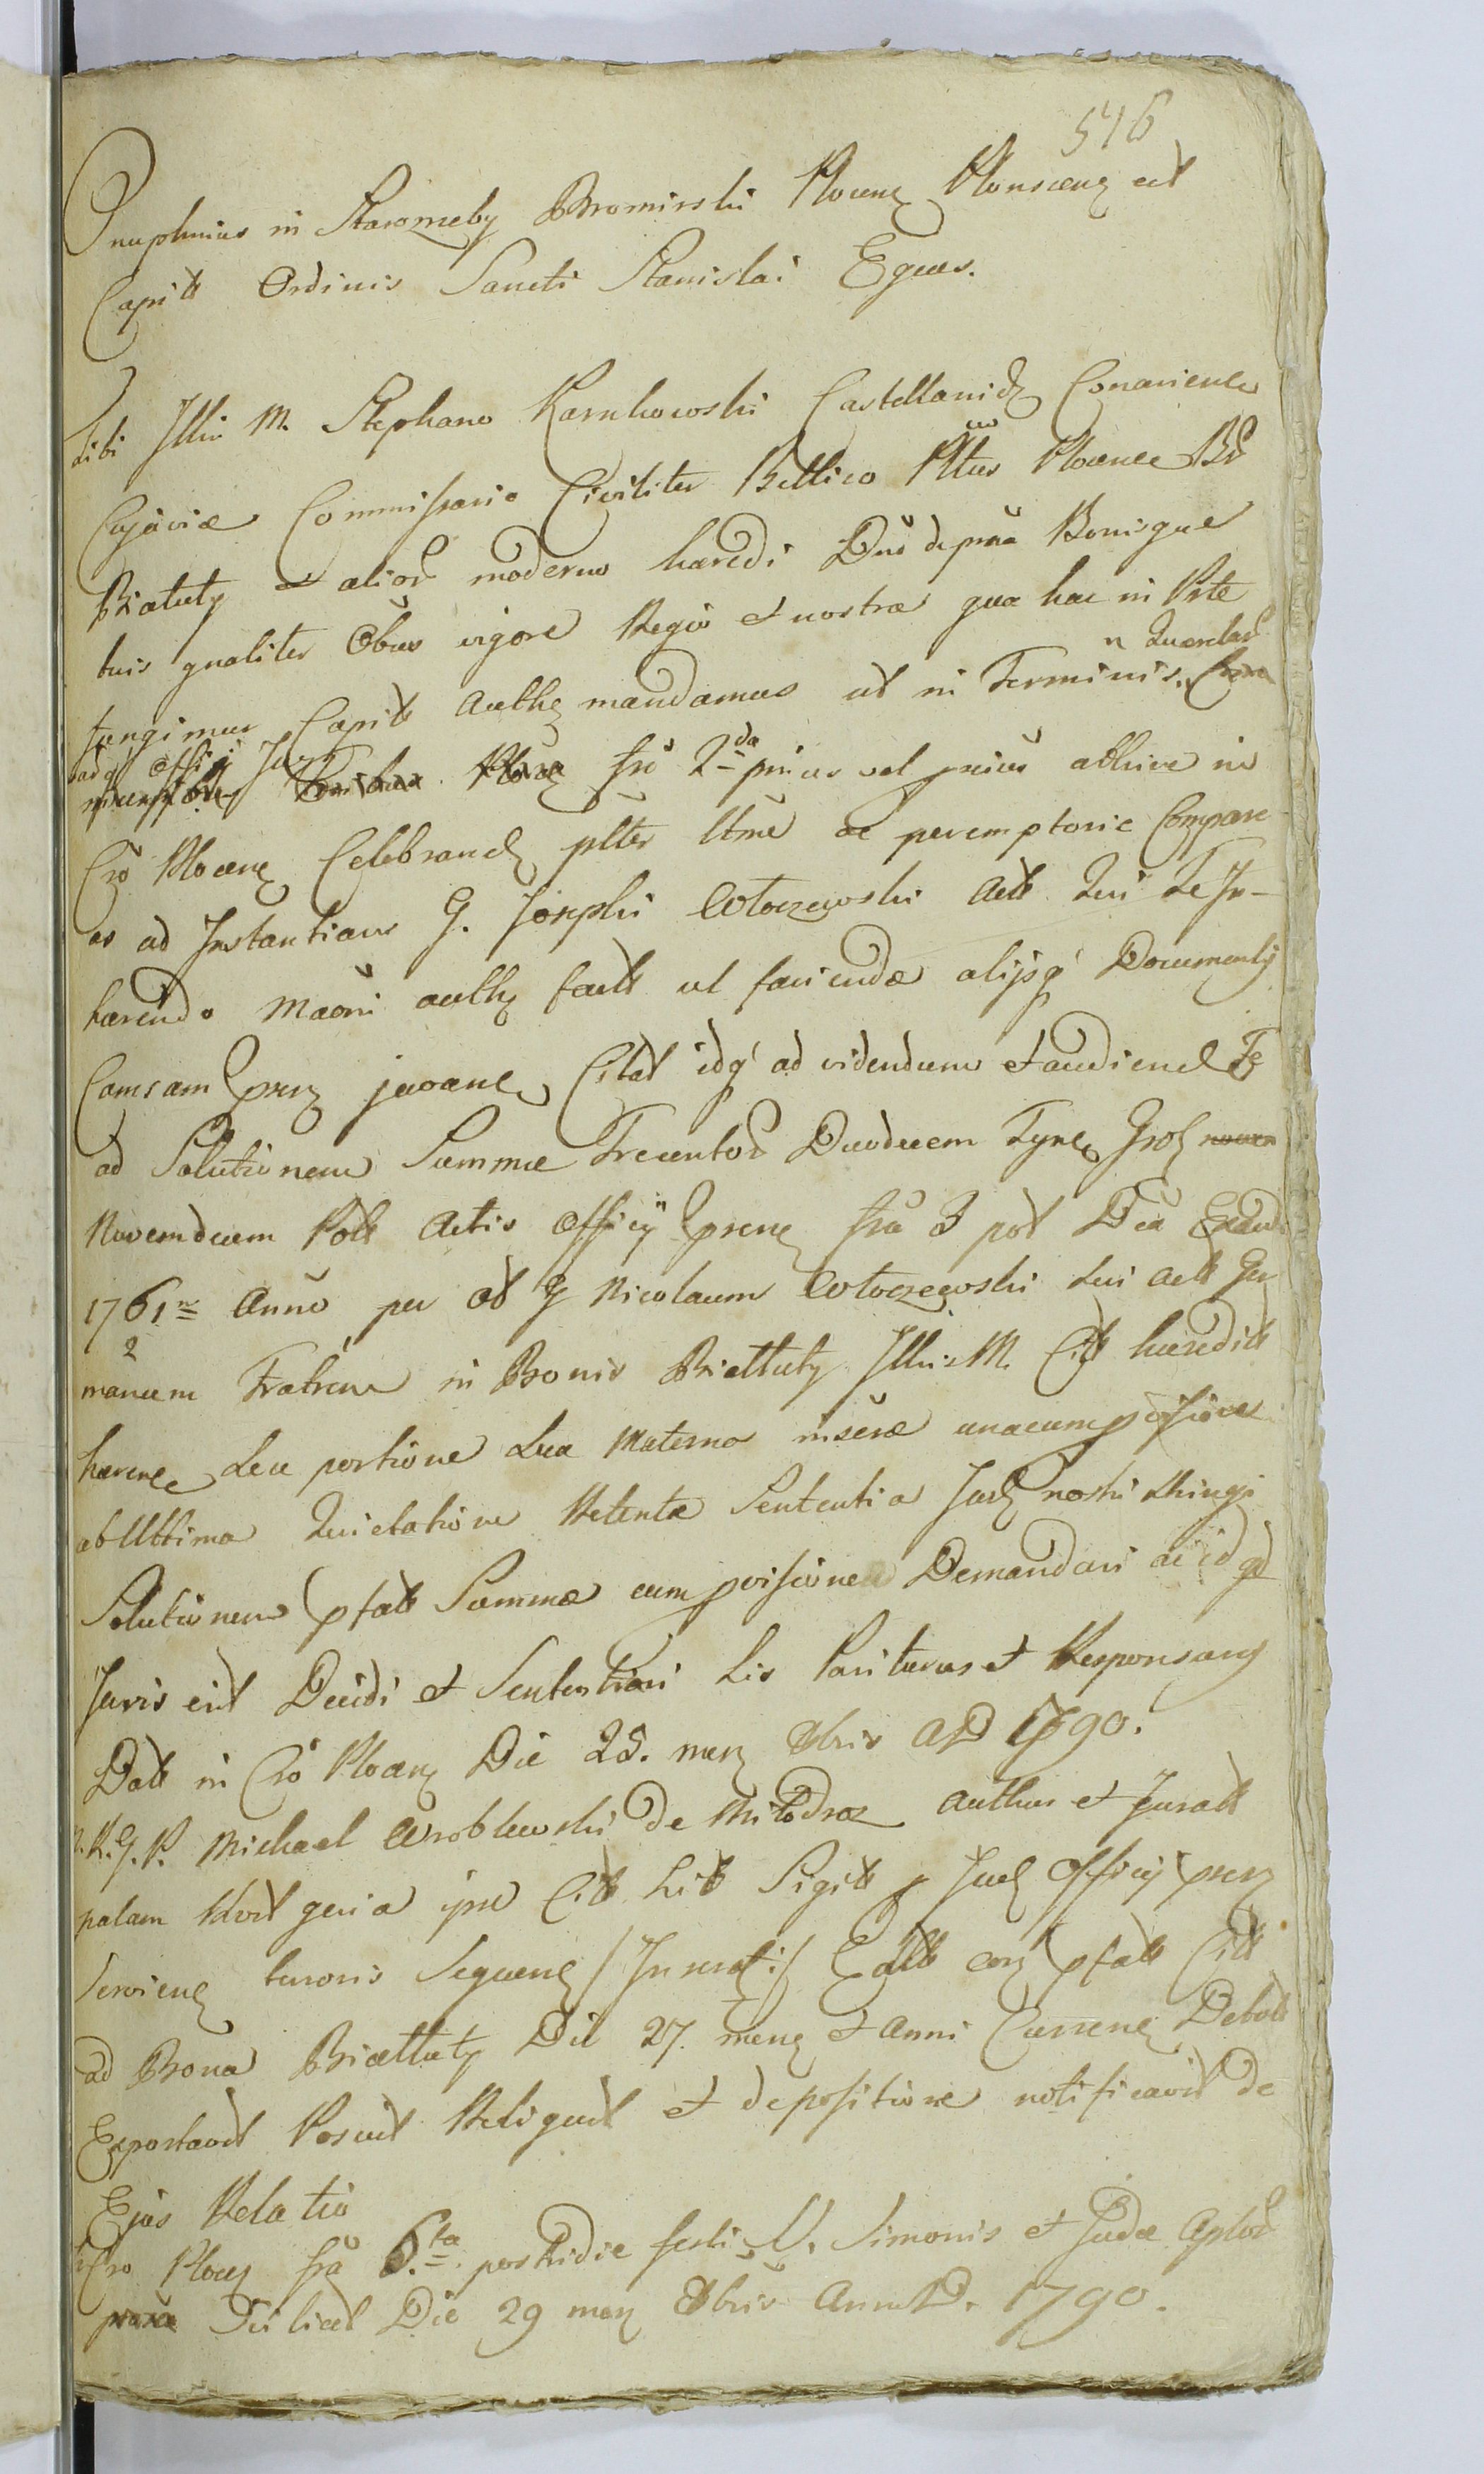 546
Onuphrius in Starozreby Bromirski Plocen Plonscen et
Capitt Ordinis Sancti Stanislai Eques.
Tibi Illri M. Stephano Karnkowski Castellanid Conariens
Cujaviæ Commissario Civiliter Bellico Pltus Plocen
Białuty et alior moderno haredi Dno de prna Bonisque
tuis gnaliter Obus vigore Regia et nostra qua hac in Pte
fungimur Capitt Authe mandamus ut in Terminis n Querelar
adq Officij fro 2da prius vel prius adhuc in
Cro Plocen Celebrand plter ltme ac peremptorie Compare
as ad Instantiam G. Josephi Wołoczewski Actt Qui Te In-
hærendo maoni authe factt ut faciendæ alijsq Documentis
Camsam prn juvane Citat idq ad videndum et audiend Te
ad Solutionem Summæ Trecentor Duodecem Tynf Gros
Novemdecem Poll Actis Officij prsne fra 3 pot Dca Exaudi
1761 Anno per ol G Nicolaum Wołoczewski sui actt Ger
manum Fratrem in Bonis Białłuty Illris M. Citt hæreditt
hærene seu portione sua Materna inscræ unacum proisione
ab Ultima Quietatione Retenta Sententia Jud nostri
Solutionem pfatt Summæ cum proisione Demandari ac id qd
Juris erit Decidi et Sententiari Sis Pariturus et Responsurus
Datt in Cro Plocen Die 25. men 8bris AD 1790.
Michael Wroblewski de authus et Juratt
palam ipse Citt Lit Sigitt p Jud Officij prn
Serviene tenoris Sequene /Inserat:/ Eastt cop pfatt Citt
ad Bona Białłuty Die 27. mens et anni Currene Debitt
Exportavit Posuit Reliquit et depositione notificavit de
Ejus Relatio
Cro Plocen fra 6.ta postridie festi S. Simonis et Judæ Aplor
Die 29 men 8bris Anno D. 1790.